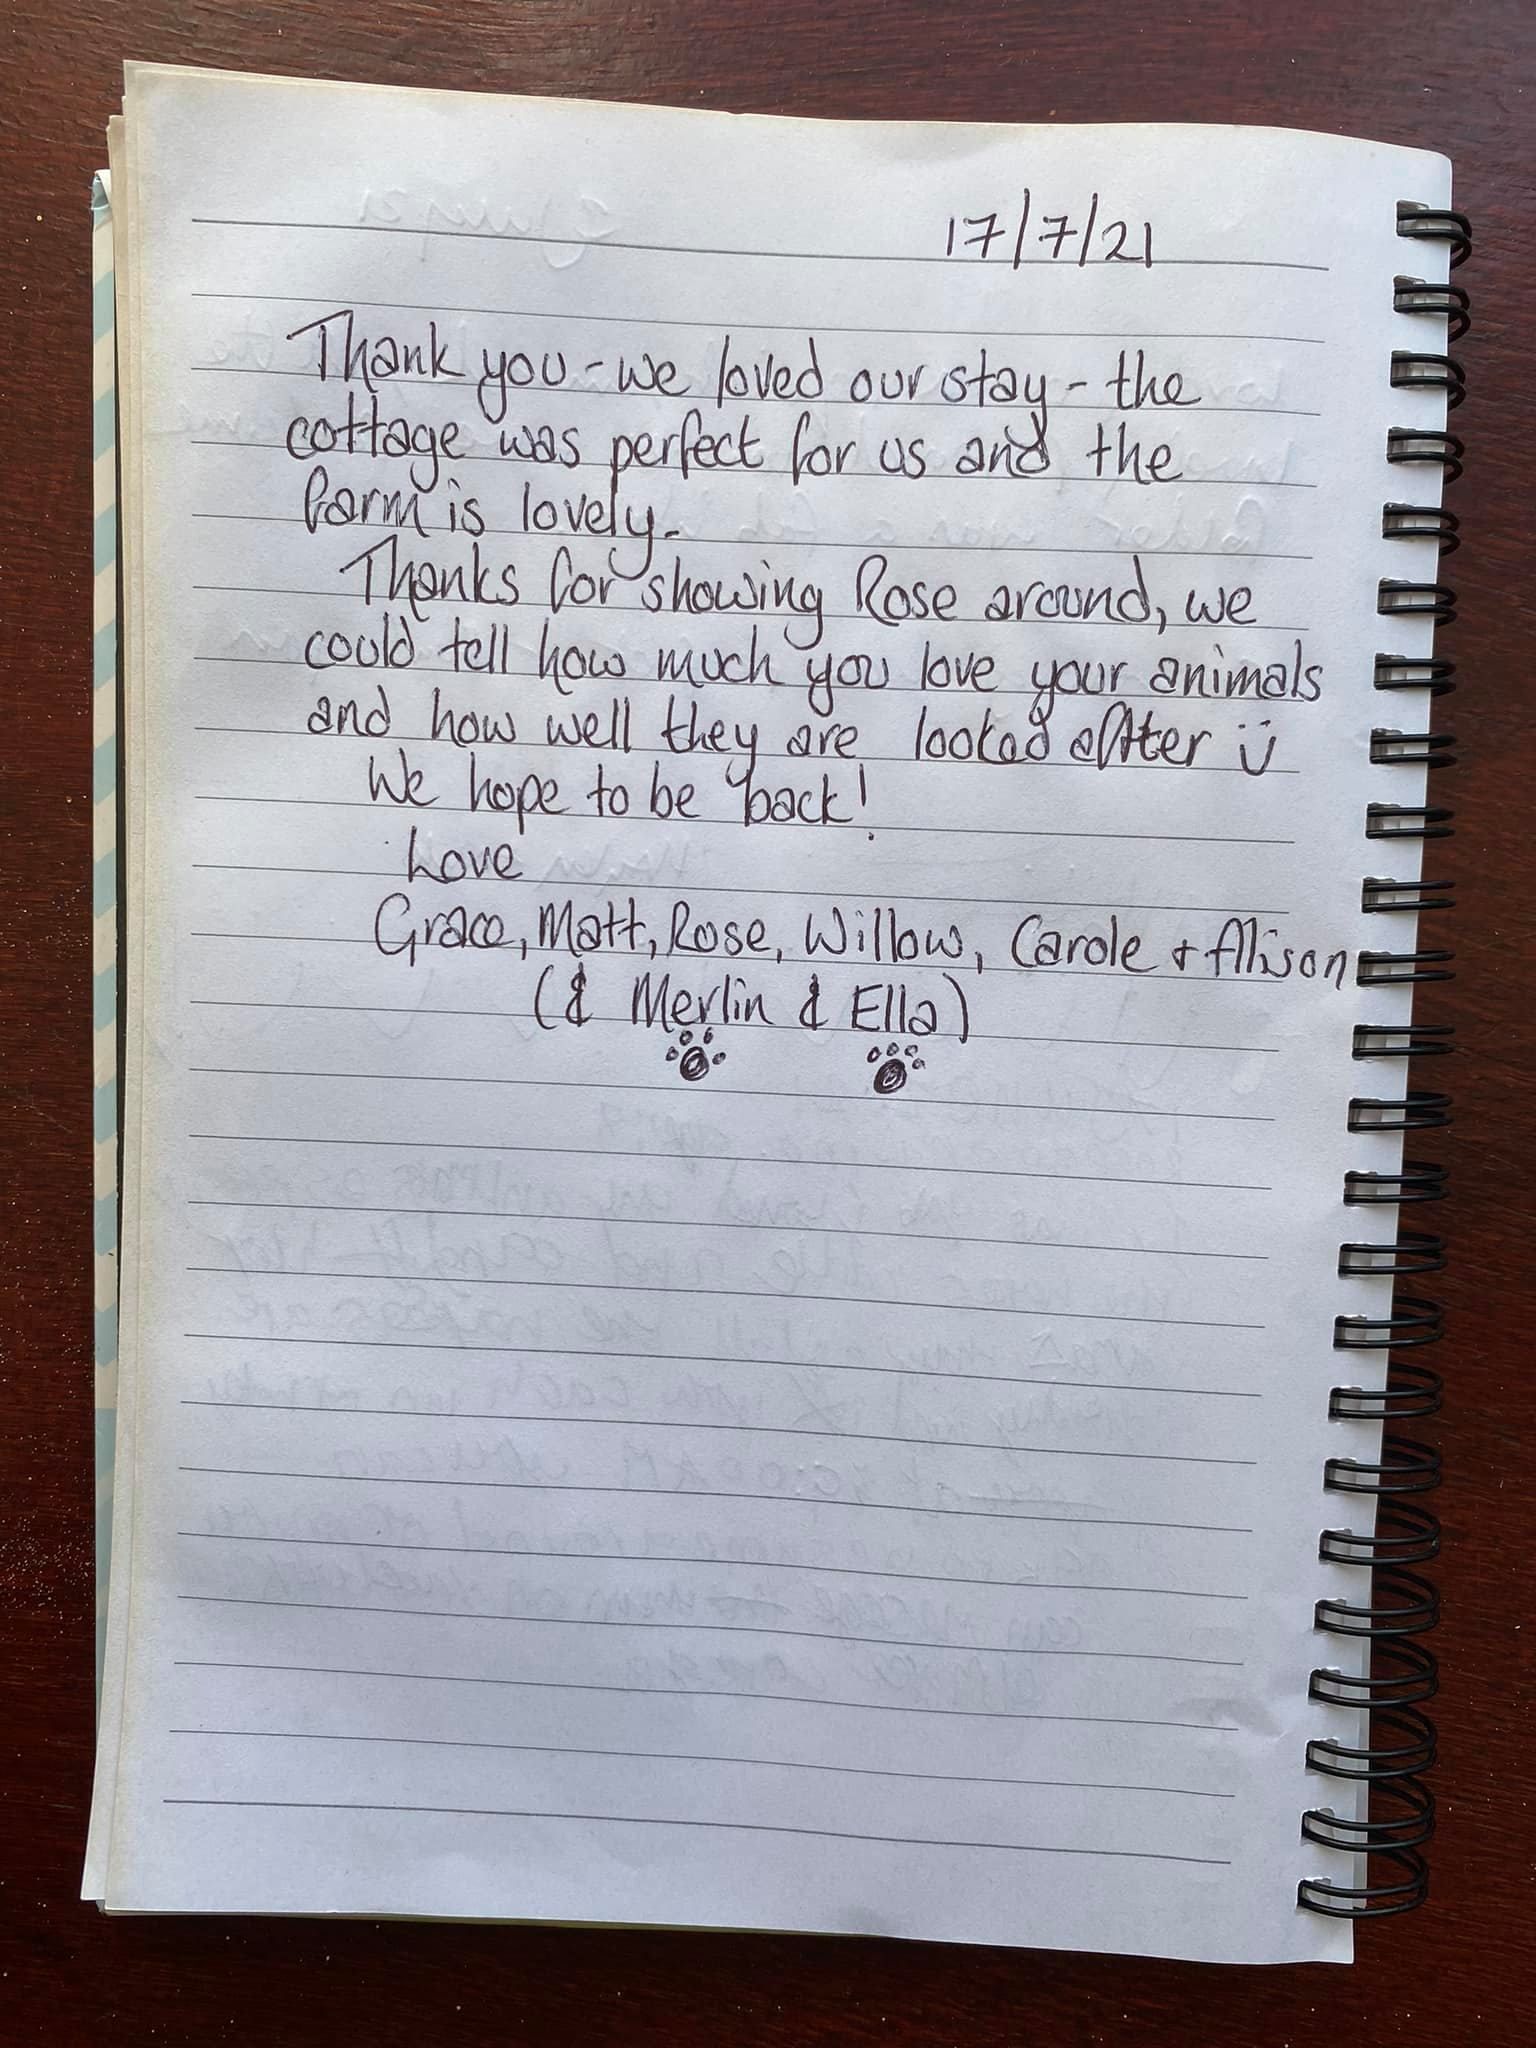 17/7/21
Thank you - we loved our stay - the
cottage was perfect for us and the
farm is lovely.
Thanks for showing Rose around, we
could tell how much you love your animals
and how well they are looked after ü
We hope to be back!
Love
Grace, Matt, Rose, Willow, Carole + Alison
(& Merlin & Ella)